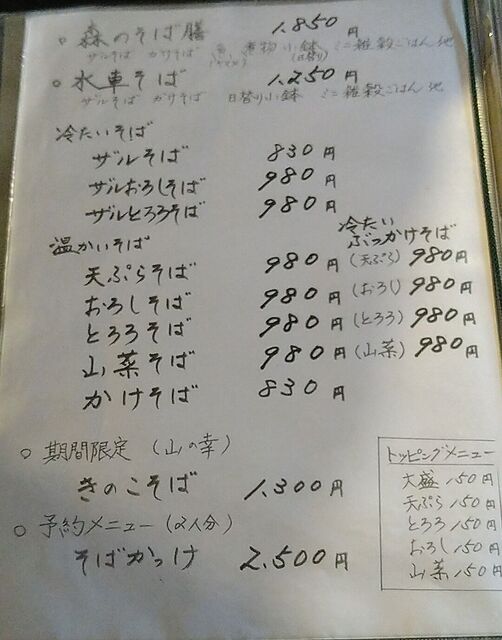 ○ 森のそば膳 1,850円
ザルそば かけそば 煮物 小鉢 (日替り) ミニ雑穀ごはん 他
○ 水車そば 1,250円
ザルそば かけそば 日替り小鉢 ミニ雑穀ごはん 他
冷たいそば
ザルそば 830円
ザルおろしそば 980円
ザルとろろそば 980円
温かいそば
天ぷらそば 980円
おろしそば 980円
とろろそば 980円
山菜そば 980円
かけそば 830円
冷たい
ぶっかけそば
(天ぷら) 980円
(おろし) 980円
(とろろ) 980円
(山菜) 980円
○ 期間限定 (山の幸)
きのこそば 1,300円
○ 予約メニュー (2人分)
そばかっけ 2,500円
トッピングメニュー
大盛 150円
天ぷら 150円
とろろ 150円
おろし 150円
山菜 150円